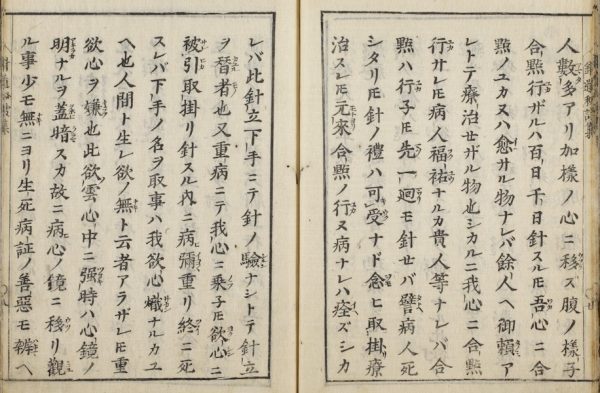 人數多アリ加樣ノ心ニ移ズ腹ノ樣子
合㸃行ザルハ百日千日針スル𪜈吾心ニ合
㸃ノユカヌハ愈サル物ナレバ餘人ヘ御賴ア
レトテ療治セザル物也シカルニ我心ニ合㸃
行サレ𪜈病人福祐ナルカ貴人等ナレバ合
㸃ハ行子𪜈先一廻モ針セバ譬病人死
シタリ𪜈針ノ禮ハ可受ナド念ヒ取掛療
治スレ𪜈元來合㸃ノ行ヌ病ナレハ痊ズシカ
レバ此針立下手ニテ針ノ驗ナシトテ針立
ヲ替者也又重病ニテ我心ニ乗子𪜈欲心ニ
被引取掛リ針スル內ニ病彌重リ終ニ死
スレバ下手ノ名ヲ取事ハ我欲心熾ナルカユ
ヘ也人間ト生レ欲ノ無ト云者アラザレ𪜈重
欲心ヲ嫌也此欲雲心中ニ强時ハ心鏡ノ
明ナルヲ蓋暗スカ故ニ病心ノ鏡ニ移リ觀
ル事少モ無ニヨリ生死病証ノ善惡モ辨ヘ